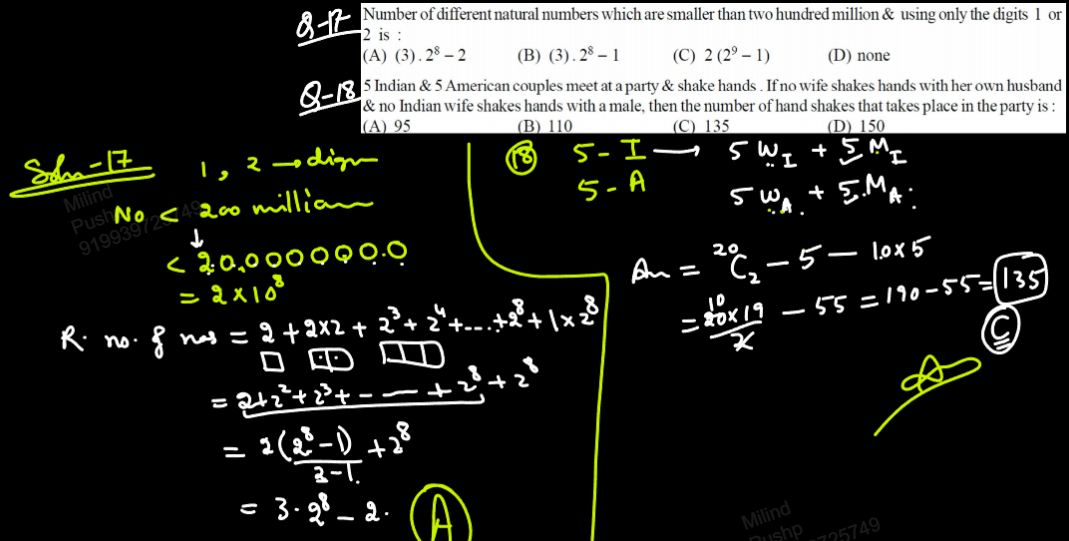 Q-17 Number of different natural numbers which are smaller than two hundred million & using only the digits 1 or
2 is :
(A) (3) . 2⁸ – 2 (B) (3) . 2⁸ – 1 (C) 2 (2⁹ – 1) (D) none
Q-18 5 Indian & 5 American couples meet at a party & shake hands . If no wife shakes hands with her own husband
& no Indian wife shakes hands with a male, then the number of hand shakes that takes place in the party is :
(A) 95 (B) 110 (C) 135 (D) 150
Soln-17
1, 2 →
No < 200 million
↓
< 20,0000000.0
= 2 × 10⁸
R. no. of nos = 2 + 2×2 + 2³ + 2⁴ + .... + 2⁸ + 1 × 2⁸
= 2 + 2² + 2³ + - - — + 2⁸ + 2⁸
= 2(2⁸ – 1) / 2-1. + 2⁸
= 3 · 2⁸ – 2.
A
18 5 - I → 5 W_I + 5 M_I
5 - A 5 W_A. + 5.M_A.
An = ²⁰C₂ – 5 – 10 × 5
= 10 20 × 19 / 2 – 55 = 190 – 55 = 135
C
Milind
Pushp
Milind
Pushp
725749